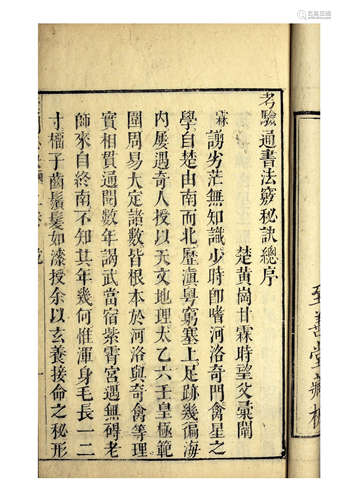 考驗通書法竅秘訣總序
楚黃崗甘霖時望父彙閘
霖謭劣茫無知識少時即嗜河洛奇門禽星之
學自楚由南而北歷滇粵窮塞上足跡幾徧海
内屢遇奇人授以天文地理太乙六壬皇極範
圍周易大定諸數皆根本於河洛與奇禽等理
實相貫通閱數年謁武當宿紫霄宮遇無碍老
師來自終南不知其年幾何惟渾身毛長一二
寸檽子齒鬚髮如漆授余以玄養接命之秘形
至善堂藏板